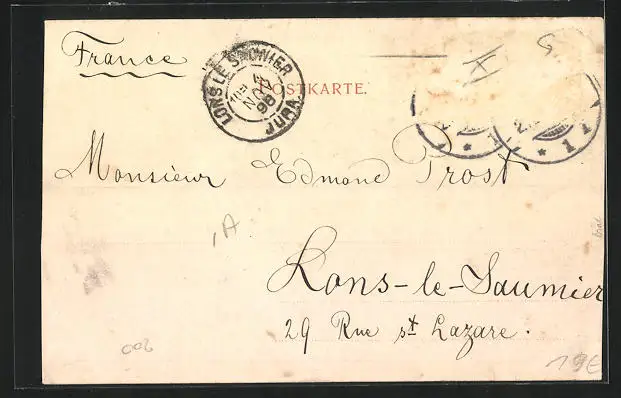 France
LONS LE SAUNIER
NOV
98
JURA
POSTKARTE.
Monsieur Edmond Prost
1A
Lons-le-Saunier
29 Rue st Lazare.
19€